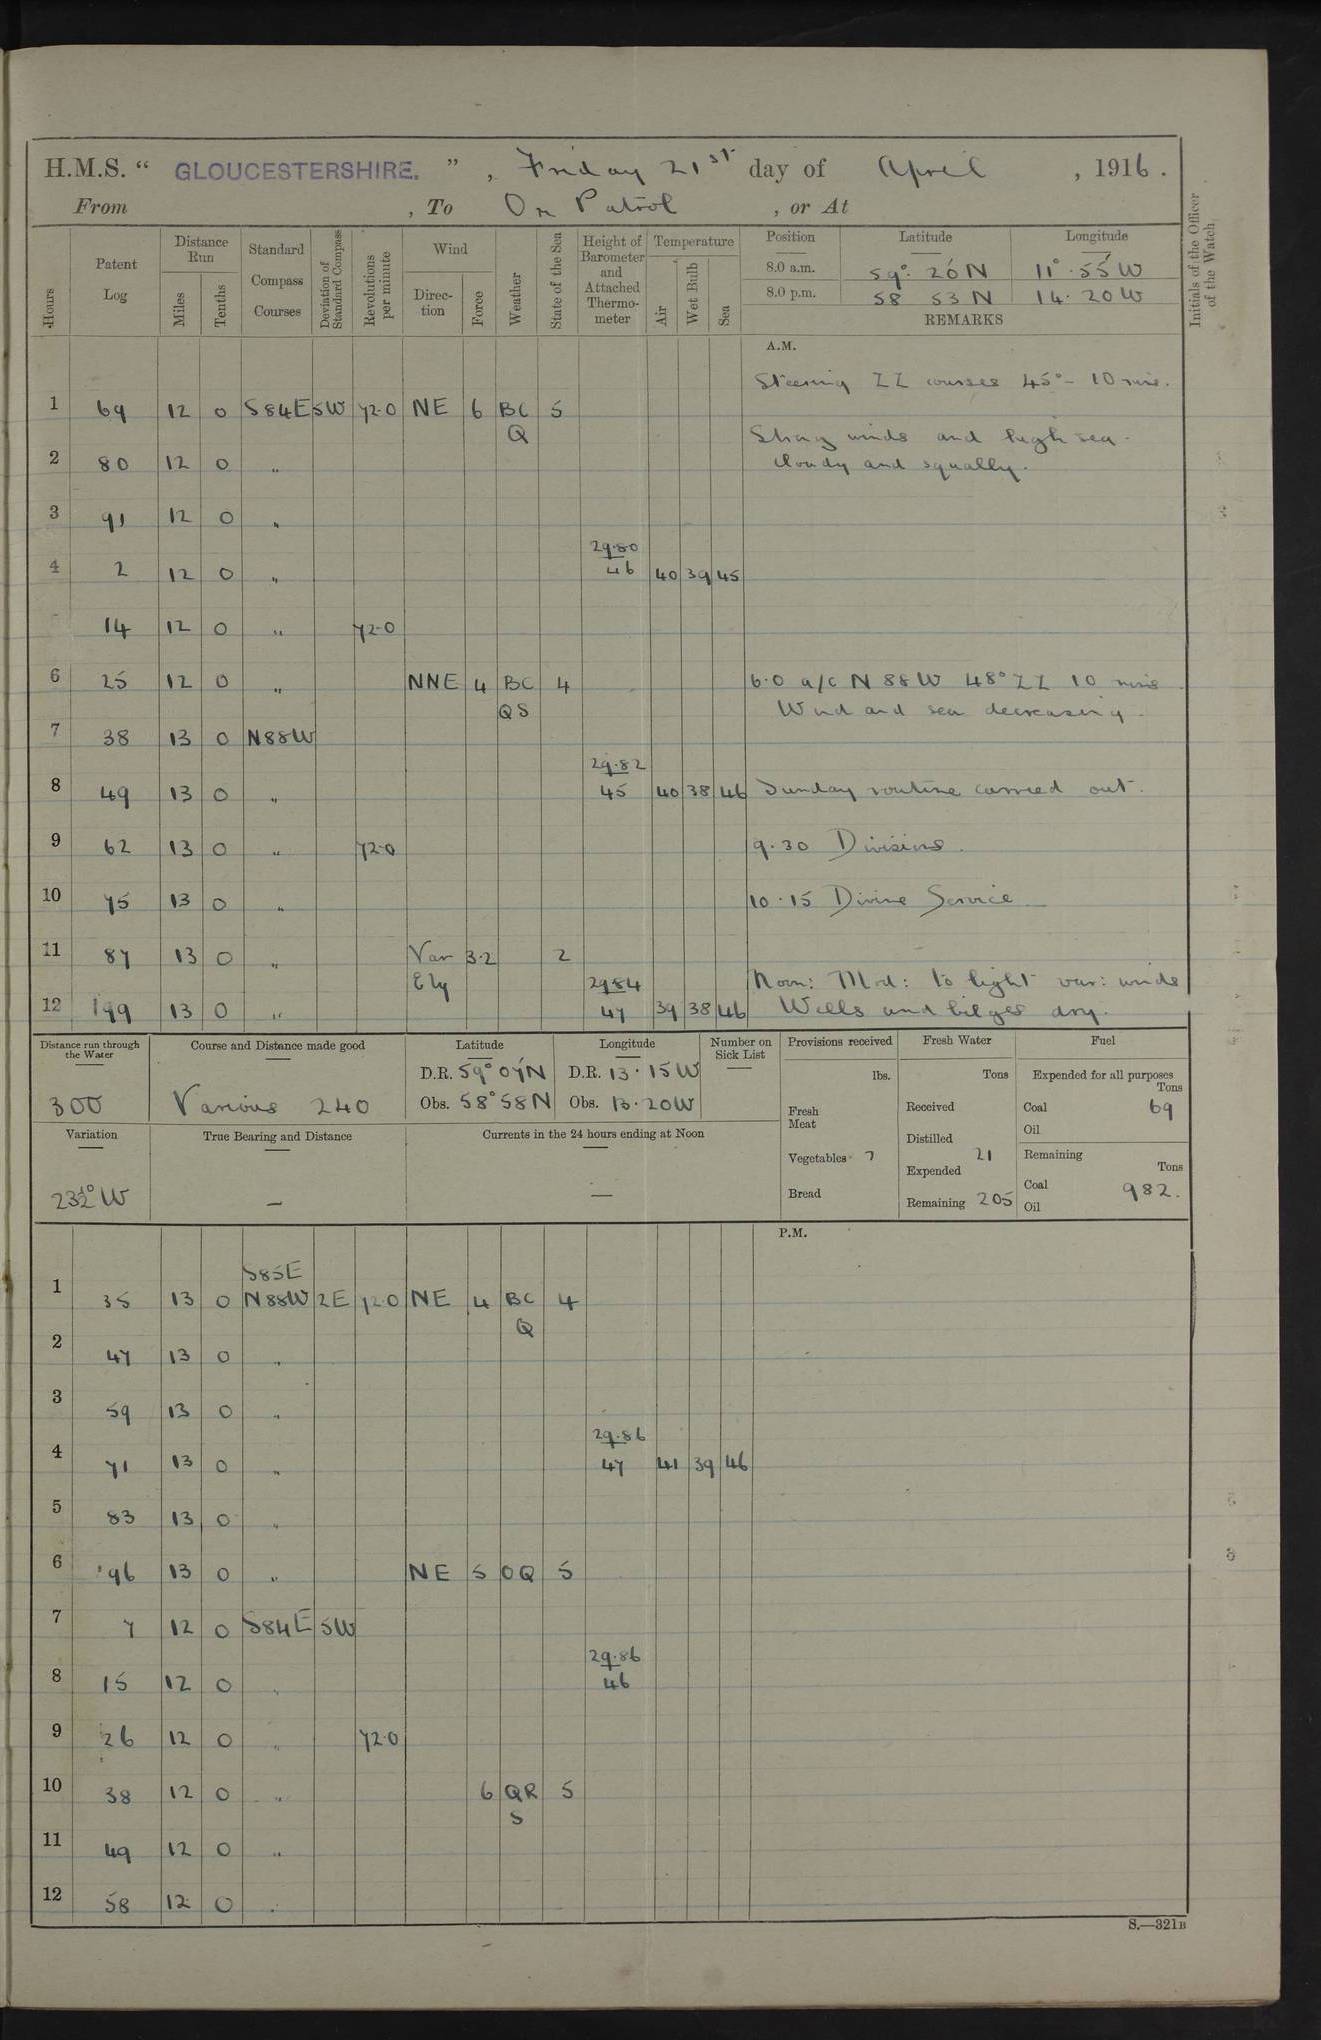 H.M.S. " GLOUCESTERSHIRE. " , Friday 21st day of April , 1916.
From , To On Patrol , or At
Hours
Patent Log
Distance Run
Miles
Tenths
Standard Compass Courses
Deviation of Standard Compass
Revolutions per minute
Wind
Direction
Force
Weather
State of the Sea
Height of Barometer and Attached Thermometer
Temperature
Air
Wet Bulb
Sea
Position Latitude Longitude
8.0 a.m. 59° 26' N 11° 55' W
8.0 p.m. 58 53 N 14. 20 W
REMARKS
Initials of the Officer of the Watch
A.M.
Steering ZZ courses 45° - 10 mins.
1 69 12 0 S84E 5W 72.0 NE 6 BC 5
Q Strong winds and high sea.
2 80 12 0 " cloudy and squally.
3 91 12 0 "
29.80
4 2 12 0 " 46 40 39 45
14 12 0 " 72.0
6 25 12 0 " NNE 4 BC 4 6.0 a/c N 88 W 48° ZZ 10 mins
QS Wind and sea decreasing.
7 38 13 0 N88W
29.82
8 49 13 0 " 45 40 38 46 Sunday routine carried out.
9 62 13 0 " 72.0 9.30 Divisions.
10 75 13 0 " 10.15 Divine Service
11 87 13 0 " Var 3.2 2
Ely 29.84 Noon: Mod: to light var: winds
12 199 13 0 " 47 39 38 46 Wells and bilges dry.
Distance run through the Water
300
Course and Distance made good
Various 240
Latitude
D.R. 59° 07' N
Obs. 58° 58 N
Longitude
D.R. 13. 15 W
Obs. 13. 20 W
Number on Sick List
Provisions received
lbs.
Fresh Meat
Vegetables 7
Bread
Fresh Water
Tons
Received
Distilled
Expended 21
Remaining 205
Fuel
Expended for all purposes
Tons
Coal 69
Oil
Remaining
Tons
Coal 982.
Oil
Variation
23½° W
True Bearing and Distance
—
Currents in the 24 hours ending at Noon
—
P.M.
S85E
1 35 13 0 N88W 2E 72.0 NE 4 BC 4
Q
2 47 13 0 "
3 59 13 0 "
29.86
4 71 13 0 " 47 41 39 46
5 83 13 0 "
6 96 13 0 " NE 5 OQ 5
7 7 12 0 S84E 5W
29.86
8 15 12 0 " 46
9 26 12 0 " 72.0
10 38 12 0 " 6 QR 5
S
11 49 12 0 "
12 58 12 0 "
S.—321B